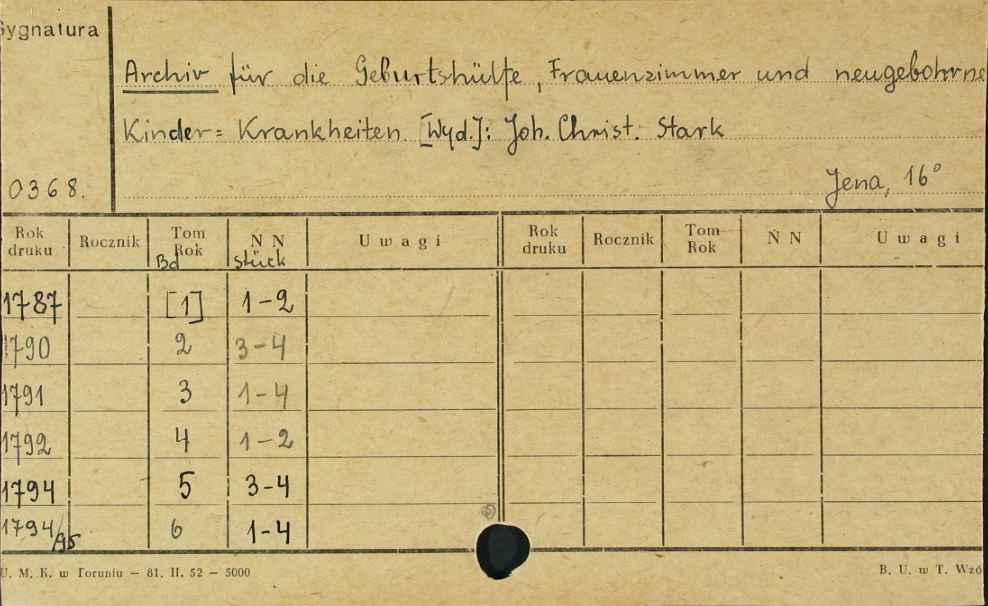 Sygnatura
Archiv für die Geburtshülfe, Frauenzimmer und neugebohrne
Kinder= Krankheiten. [Wyd.]: Joh. Christ. Stark
0368.
Jena, 16°
Rok druku Rocznik Tom Rok N N U w a g i Rok druku Rocznik Tom Rok N N U w a g i
Bd Stück
1787 [1] 1-2
1790 2 3-4
1791 3 1-4
1792 4 1-2
1794 5 3-4
1794/95 6 1-4
U. M. K. w Toruniu — 81. II. 52 — 5000
B. U. w T. Wzó